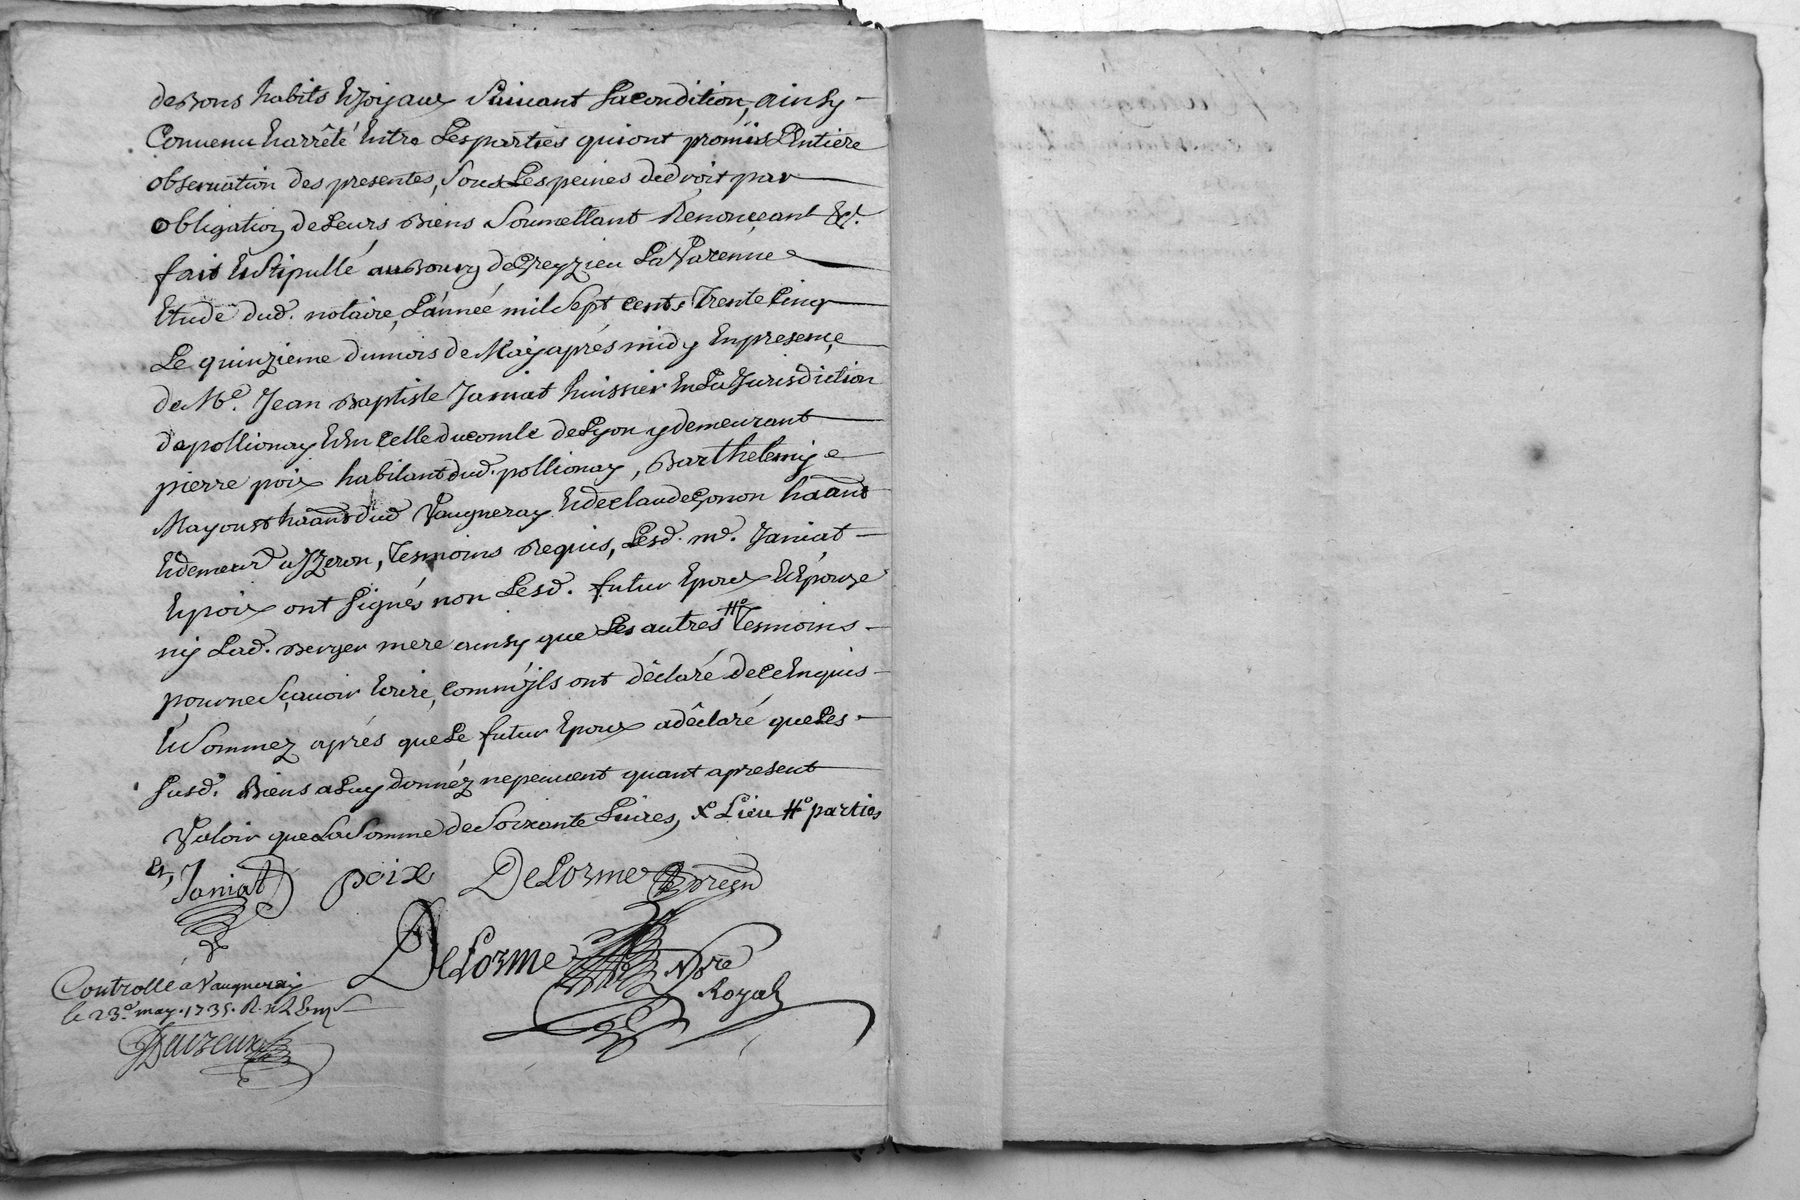 de Bons habits Et Joyaux Suivant Sa Condition, ainsy
Convenu Et arrêté Entre Les parties qui ont promis L'Entière
observation des presentes, Sous Les peines de droit par
obligation de Leurs Biens Soumettant Renonçeant &c.
fait Et Stipullé au Bourg de Greyzieu La Varenne
Etude dud. notaire, L'année mil Sept cents Trente Cinq
Le quinzieme du mois de May après midy En presence
de Me. Jean Baptiste Janiat huissier En La Jurisdiction
de pollionay Et En Celle du comté de Lyon y demeurant
pierre poix habitant dud. pollionay, Barthelemy
Mayoust haant dud Vaugneray Et de claude Gonon haant
Et demeurt a Yzeron, Tesmoins Requis, Lesd. me. Janiat
Et poix ont Signés non Lesd. futur Epoux Et Epouze
ny Lad. Berger mere ainsy que Les autres # Tesmoins
pour ne Sçavoir Ecrire, Comm'jls ont déclaré de ce Enquis
Et Sommez après que Le futur Epoux a déclaré que Les
Susd. Biens a Luy donnéz ne peuvent quant a present
Valoir que La Somme de Soixante Livres, X Lieu # parties
Et, Janiat poix DeLorme
DeLorme Nore
Royal
Controllé a Vaugneray
le 23e. may. 1735. R.